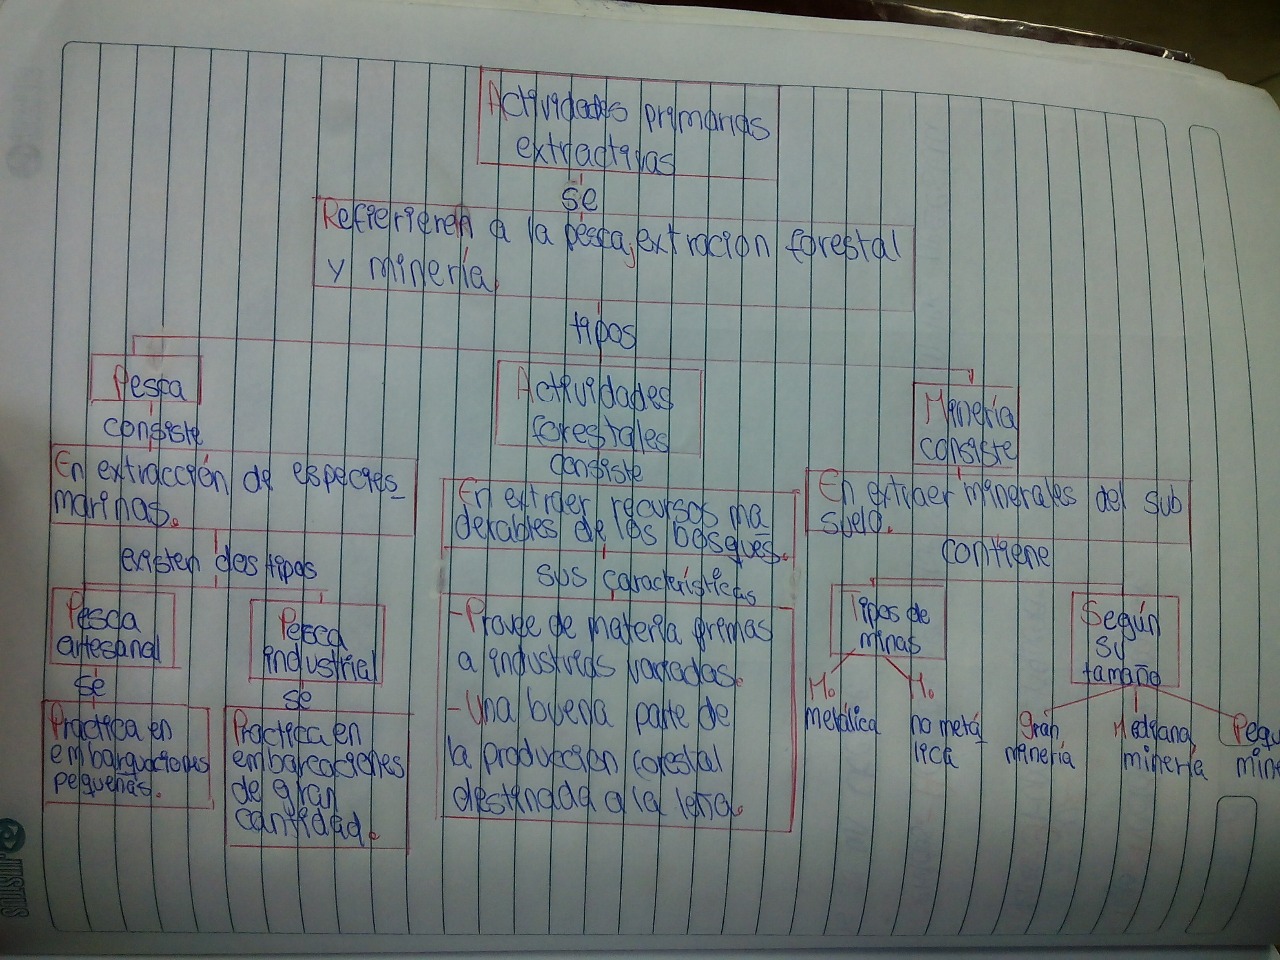 Actividades primarias
extractivas
se
Refierieren a la pesca, extracion forestal
y minería.
tipos
Pesca
consiste
En extracción de especies
marinas.
existen dos tipos
Pesca
artesanal
se
Practica en
embarquaciones
pequeñas.
Pesca
industrial
se
Practica en
embarcaciones
de gran
cantidad.
Actividades
forestales
consiste
En extraer recursos ma
derables de los bosques.
sus características
-Provee de materia primas
a industrias variadas.
-Una buena parte de
la produccion forestal
destinada a la leña.
Minería
consiste
En extraer minerales del sub
suelo.
contiene
Tipos de
minas
M.
metálica
M.
no metá
lica
Según
su
tamaño
gran
minería
Mediana
minería
Pequ
mine
JUSTUS